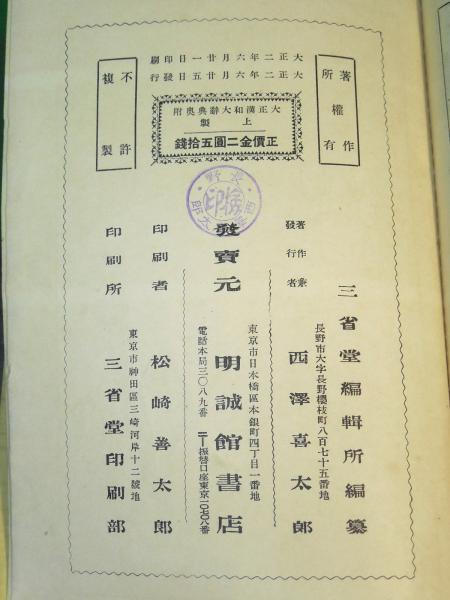 大正二年六月廿一日印刷
大正二年六月廿五日發行
著作
所權有
不許
複製
大正漢和大辭典奥附
上製
正價金二圓五拾錢
長野
三省堂編輯所編纂
著作兼
發行者
長野市大字長野櫻枝町八百七十五番地
西澤喜太郎
發賣元
東京市日本橋區本銀町四丁目一番地
明誠館書店
電話本局三〇八九番
振替口座東京一〇七〇八番
印刷者
松崎善太郎
東京市神田區三崎河岸十二號地
印刷所
三省堂印刷部